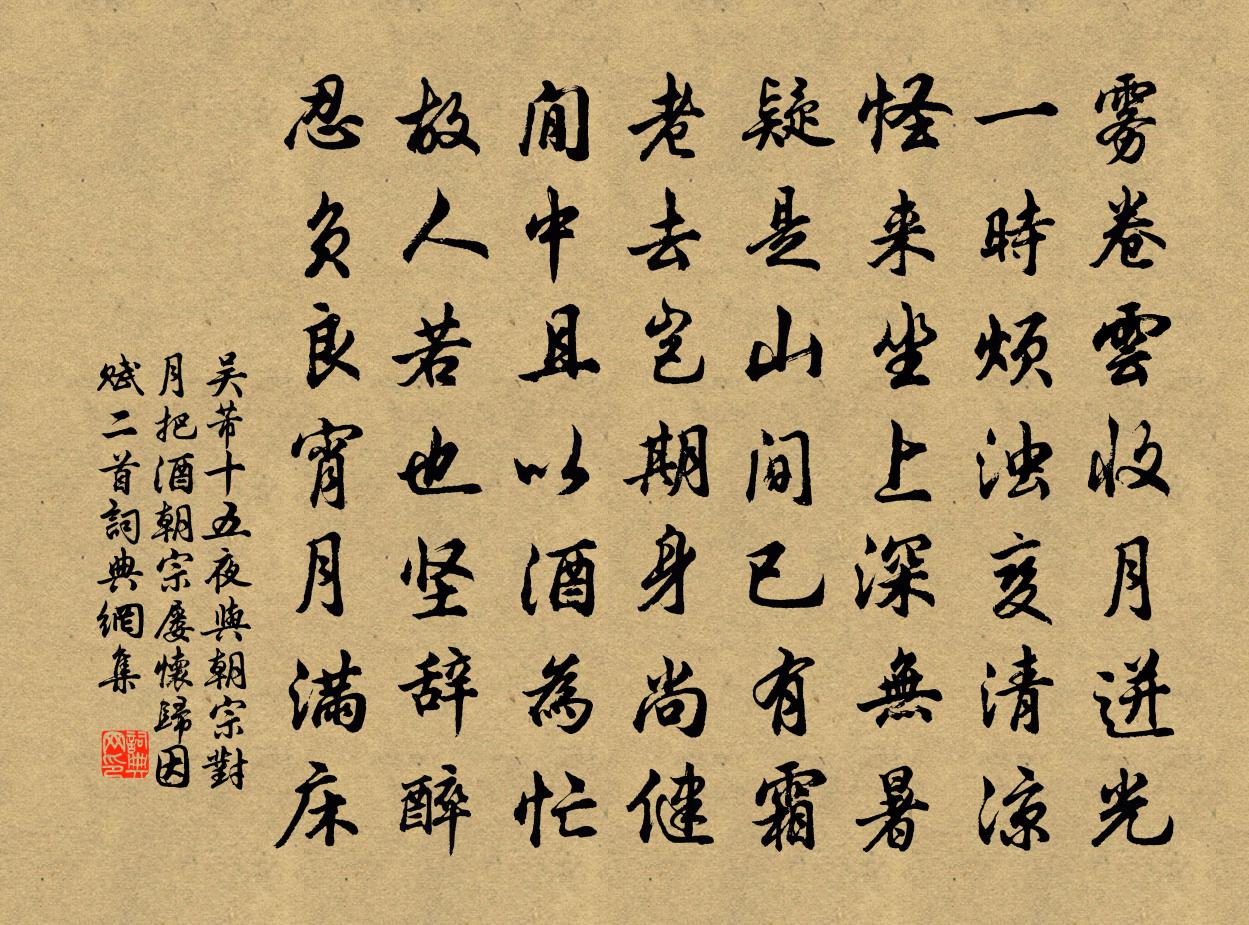 雾卷雲收月迸光
一時煩浊变清涼
怪来坐上深無暑
疑是山间已有霜
老去岂期身尚健
閒中且以酒為忙
故人若也坚辞醉
忍负良宵月满床
吴芾十五夜與朝宗對
月把酒朝宗屡懷歸因
赋二首詞典網集
詞典网印